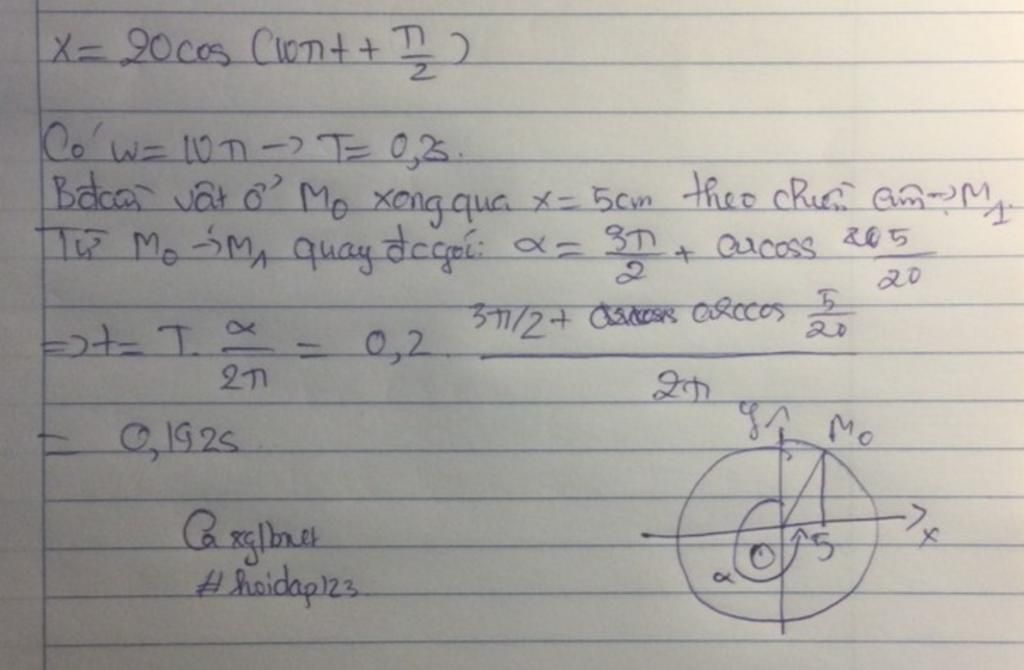 x = 20cos (10πt + π/2)
Có w = 10π -> T = 0,2s.
vật ở M₀ xong qua x = 5cm theo chiều âm -> M₁.
Từ M₀ -> M₁ quay đc góc: α = 3π/2 + arccos 5/20
=> t = T. α/2π = 0,2. (3π/2 + arccos 5/20)/2π
= 0,192s
y
M₀
O
5
x
α
#hoidap123